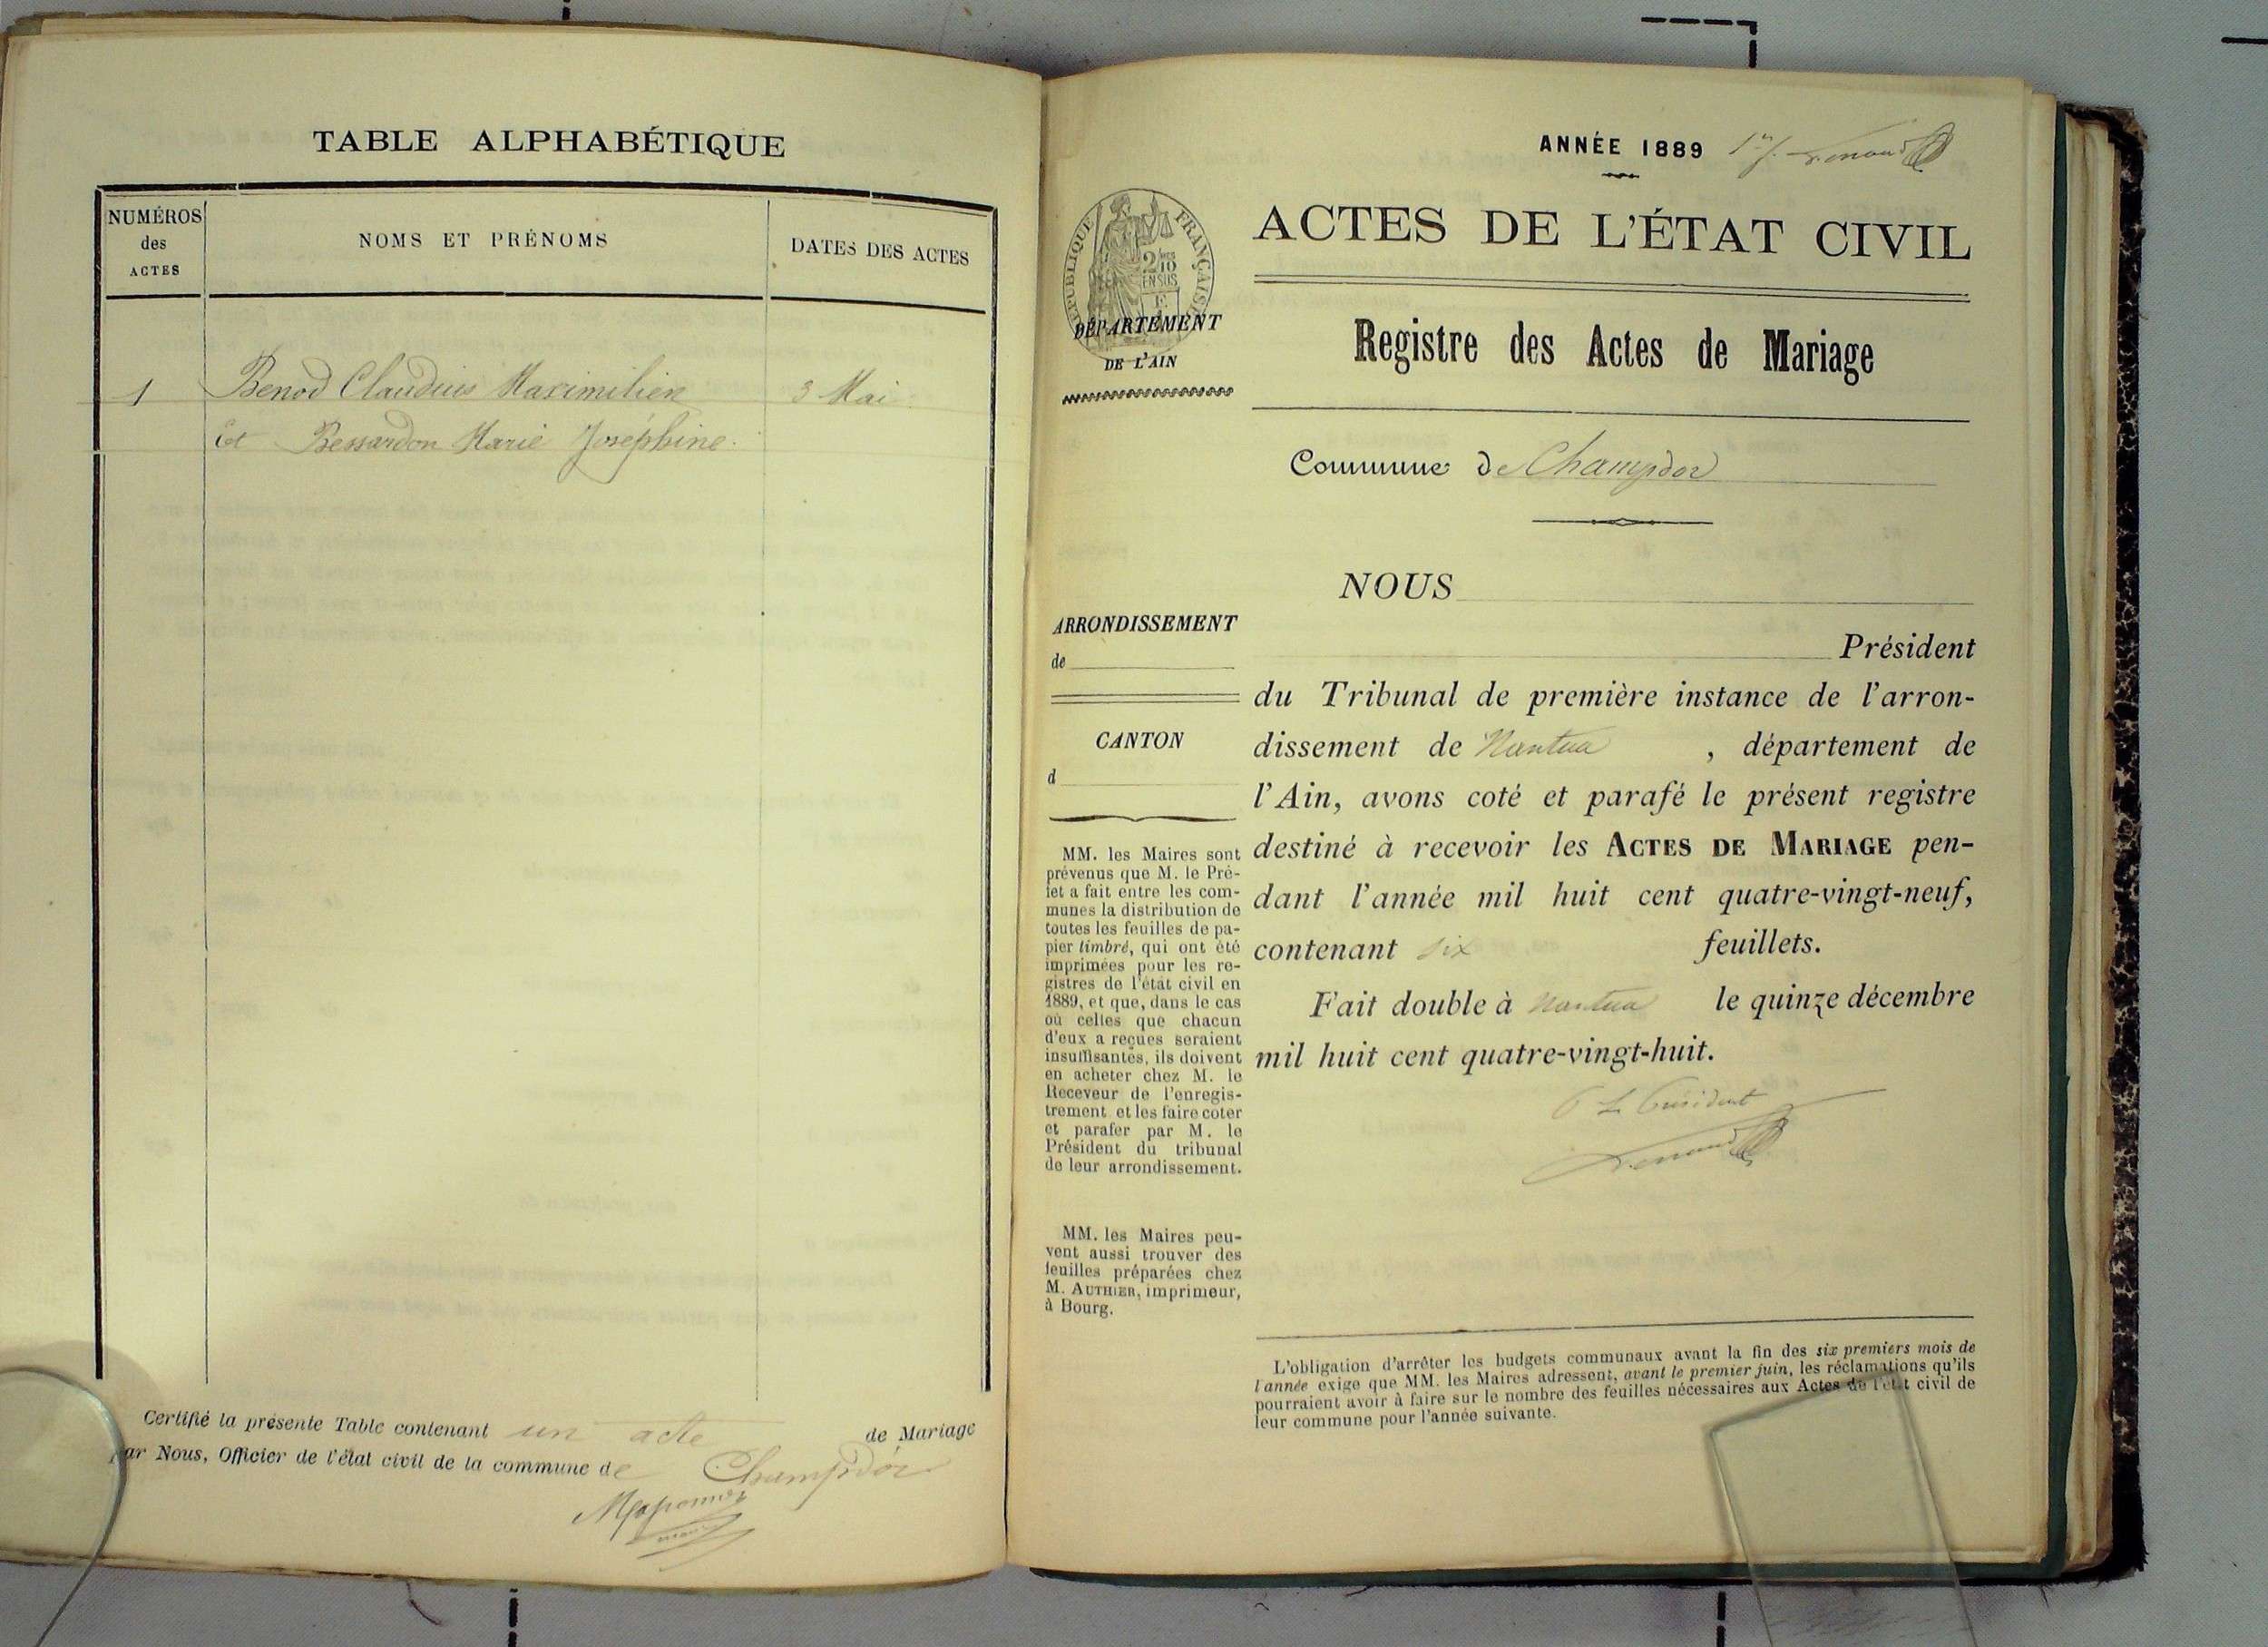 TABLE ALPHABÉTIQUE
NUMÉROS
des
ACTES
NOMS ET PRÉNOMS
DATES DES ACTES
1 Benod Claudius Maximilien 3 Mai
Et Bessardon Marie Joséphine.
Certifié la présente Table contenant un acte de Mariage
par Nous, Officier de l'état civil de la commune de Champdor
ANNÉE 1889
ACTES DE L'ÉTAT CIVIL
RÉPUBLIQUE FRANÇAISE
2/10
EN SUS
DÉPARTEMENT
DE L'AIN
Registre des Actes de Mariage
Commune de Champdor
NOUS
ARRONDISSEMENT
de
CANTON
d
Président
du Tribunal de première instance de l'arron-
dissement de Nantua , département de
l'Ain, avons coté et parafé le présent registre
destiné à recevoir les ACTES DE MARIAGE pen-
dant l'année mil huit cent quatre-vingt-neuf,
contenant six feuillets.
Fait double à Nantua le quinze décembre
mil huit cent quatre-vingt-huit.
Le Président
MM. les Maires sont
prévenus que M. le Pré-
fet a fait entre les com-
munes la distribution de
toutes les feuilles de pa-
pier timbré, qui ont été
imprimées pour les re-
gistres de l'état civil en
1889, et que, dans le cas
où celles que chacun
d'eux a reçues seraient
insuffisantes, ils doivent
en acheter chez M. le
Receveur de l'enregis-
trement et les faire coter
et parafer par M. le
Président du tribunal
de leur arrondissement.
MM. les Maires peu-
vent aussi trouver des
feuilles préparées chez
M. AUTHIER, imprimeur,
à Bourg.
L'obligation d'arrêter les budgets communaux avant la fin des six premiers mois de
l'année exige que MM. les Maires adressent, avant le premier juin, les réclamations qu'ils
pourraient avoir à faire sur le nombre des feuilles nécessaires aux Actes de l'état civil de
leur commune pour l'année suivante.